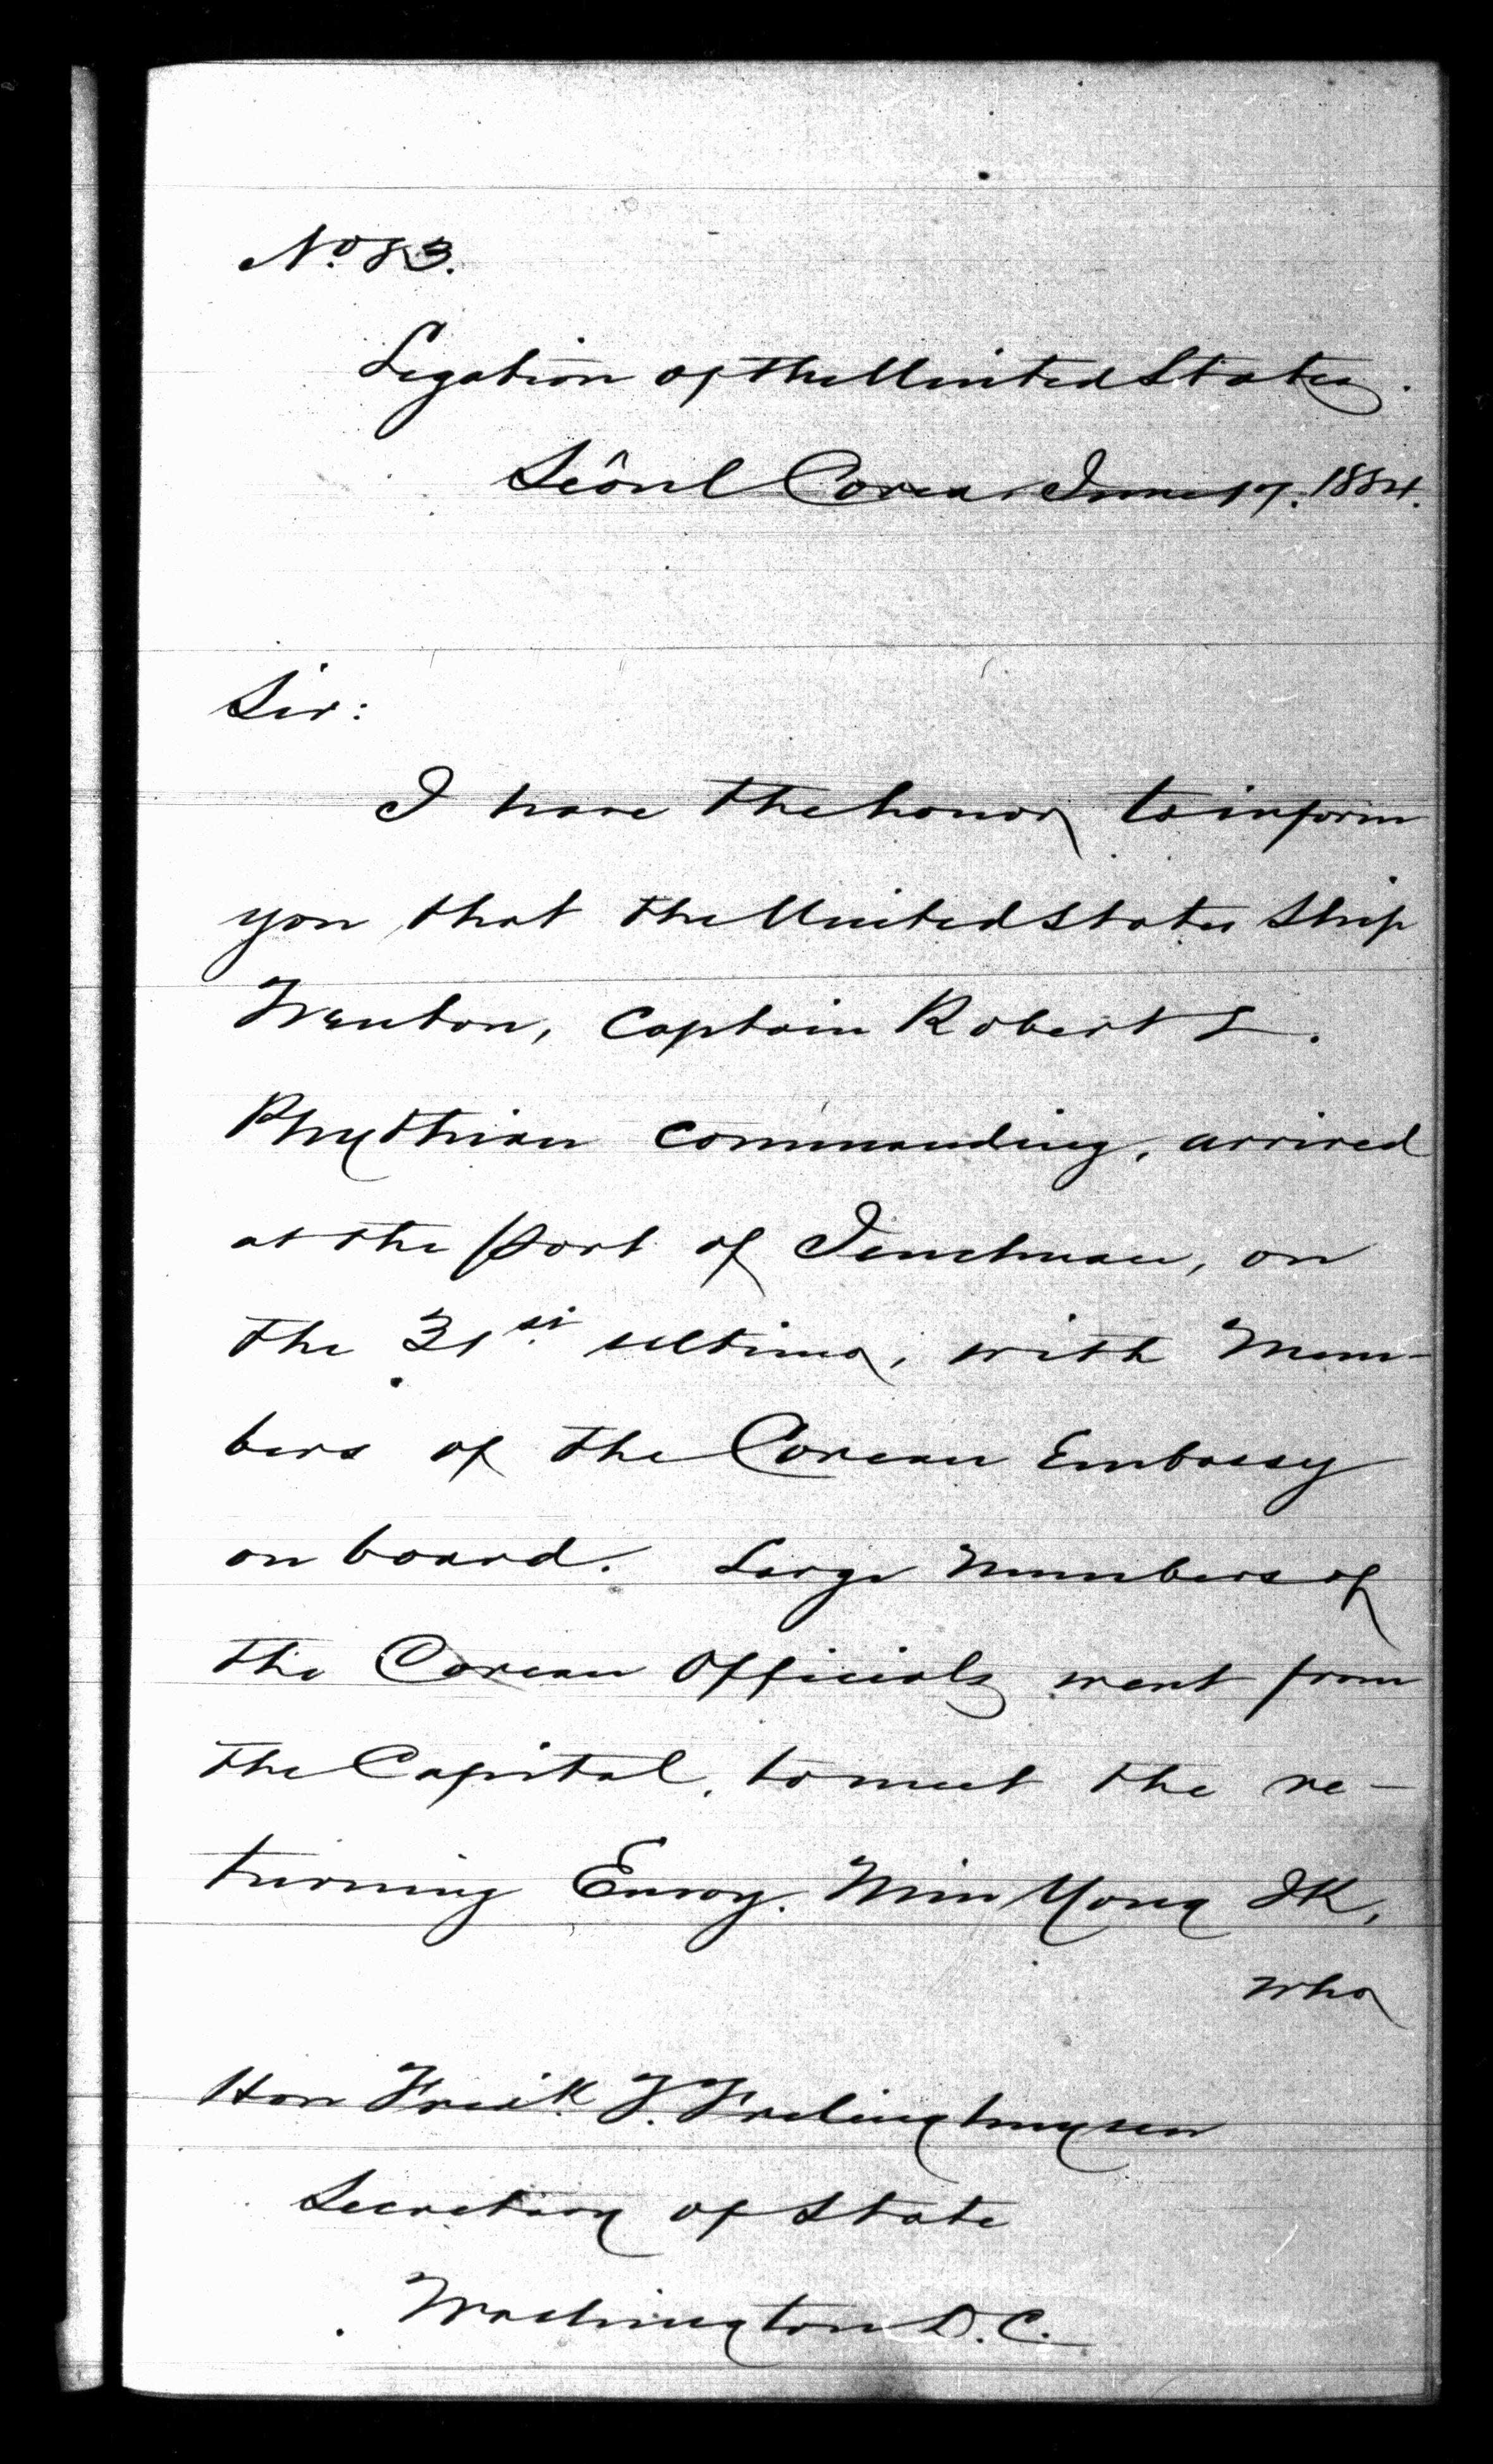 No. 83.
Legation of the United States.
Seôul Corea. June 17. 1884.
Sir:
I have the honor to inform
you that the United States Ship
Trenton, Captain Robert L.
Phythian commanding, arrived
at the port of Jenchuan, on
the 31st ultimo, with Mem-
bers of the Corean Embassy
on board. Large numbers of
the Corean Officials went from
the Capital, to meet the re-
turning Envoy. Min Yong IK,
who
Hon Fred'k. T. Frelinghuysen
Secretary of State
Washington D.C.